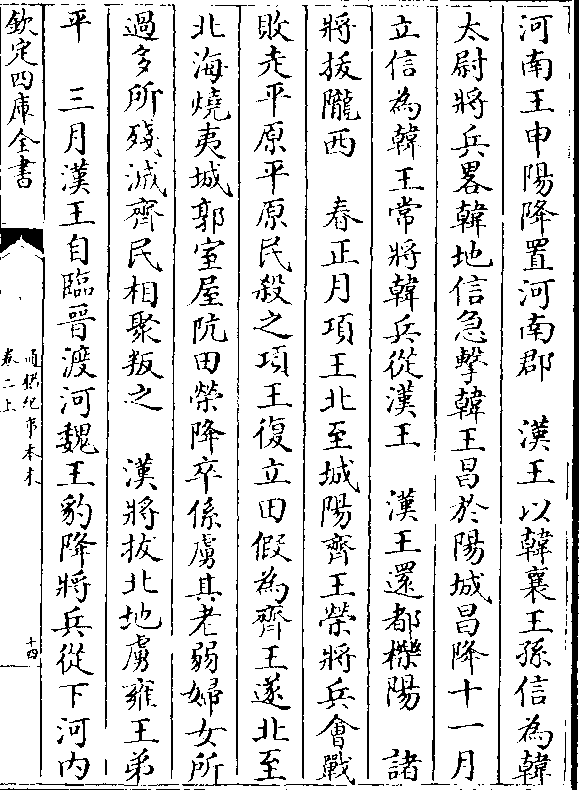 河南王申陽降置河南郡　漢王以韓襄王孫信為韓
太尉將兵畧韓地信急擊韓王昌於陽城昌降十一月
立信為韓王常將韓兵從漢王　漢王還都櫟陽　諸
將拔隴西　春正月項王北至城陽齊王榮將兵會戰
敗走平原平原民殺之項王復立田假為齊王遂北至
北海燒夷城郭室屋阬田榮降卒係虜其老弱婦女所
過多所殘滅齊民相聚叛之　漢將拔北地虜雍王弟
平　三月漢王自臨晉渡河魏王豹降將兵從下河内
欽定四庫全書
通鑑紀事本末
卷二上
十四